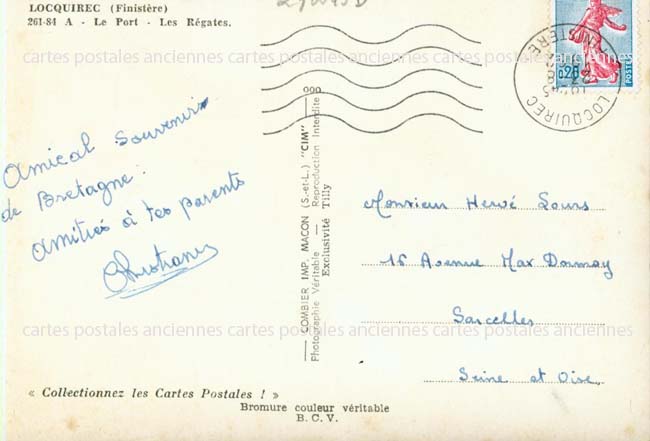 LOCQUIREC (Finistère)
261-84 A - Le Port - Les Régates.
0,20
POSTES
LOCQUIREC
FINISTERE
Amical souvenir
de Bretagne.
amitiés à tes parents
Christiane
COMBIER IMP. MACON (S.-et-L.) "CIM"
Photographie Véritable — Reproduction Interdite
Exclusivité Tilly
Monsieur Hervé Lours
16 Avenue Max Dormoy
Sarcelles
Seine et Oise
cartes postales anciennes cartes postales anciennes cartes postales anciennes
« Collectionnez les Cartes Postales ! »
Bromure couleur véritable
B. C. V.